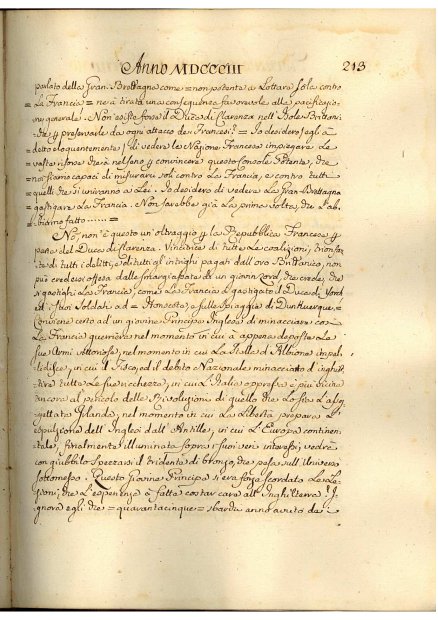 Anno MDCCCIII 213
parlato della Gran-Brettagna come = non potente a Lottare sola contro
= La Francia = ne à tirata una conseguenza favorevole alla pacificazio-
ny generale. Non esiste forse il Duca di Clarenza nell'Isole Brittani-
che p preservarle da ogni attacco de' Francesi? = Io desidero (egli à
detto eloquentemente) di vedere la Nazione Francese impiegare Le
vaste risorse che à nel seno, p convincere questo Console Potente, che
noi siamo capaci di misurarci soli contro La Francia, e contro tutti
quelli che si uniranno a Lei. Io desidero di vedere La Gran-Brettagna
gastigare La Francia. Non sarebbe già La prima volta, che L'ab-
biamo fatto ...... =
No, non è questo un'oltraggio p La Repubblica Francese p
parte del Duca di Clarenza. Vincitrice di tutte Le coalizioni, trionfan-
te di tutti i delitti, e di tutti gl'intrighi pagati dall'oro Brittannico, non
può credersi offesa dalle di un giovane Lord, che crede, che
si gastighi La Francia, come La Francia à gastigato il Duca di York
ed i suoi Soldati ad = Honscote, e sulle Spiaggie di Dunkuerque. =
Conviene certo ad un giovine Principe Inglese di minacciare così
La Francia guerriera nel momento in cui à appena deposte Le
sue Armi vittoriose, nel momento in cui La stella d'Albione impal-
lidisce, in cui il Fisco, ed il debito Nazionale minacciano d'inghiot-
tire tutte Le sue ricchezze, in cui L' oppressa è più vicina
ancora al pericolo delle Rivoluzioni di quello che Lo sia La
gettata Irlanda, nel momento in cui La Libertà prepara L'
espulsione dell'Inglesi dall'Antille, in cui L'Europa continen-
tale, finalmente illuminata sopra i suoi veri interessi, vedrà
con giubbilo spezzarsi il tridente di bronzo, che pesa sull'Universo
sottomesso. Questo giovine Principe si era forse scordato Le Le-
zioni, che L'esperienza à fatte costar care all'Inghilterra? I-
gnora egli che = quarantacinque = sbarchi anno avuto da i